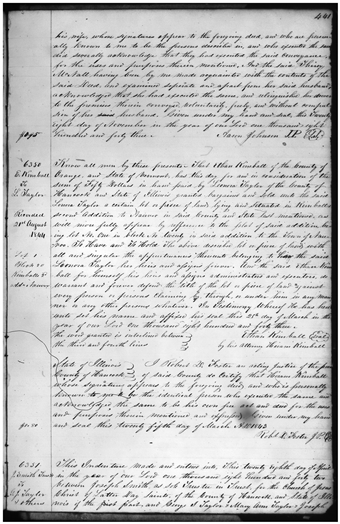 441
his wife, whose signatures appear to the foregoing deed, and who are person-
ally known to me to be the persons described in, and who executed the same
did severally acknowledge that they had executed the said conveyance
for the uses and purposes therein mentioned. And the said
having been by me made acquainted with the contents of the
said deed, and examined separate and apart from her said husband
acknowledged that she had executed the same, and relinquished her dower
to the premises therein conveyed, voluntarily, freely, and without compul-
sion of her said husband. Given under my hand and seal this twenty
eighth day of November in the year of our Lord one thousand eight
hundred and forty three. Aaron Johnson
6330
E. Kimball
To
L. Taylor
Recorded
21st August
1844
Lot 1
Block
Kimball's 2d
Add. Nauvoo
Know all men by these presents, That Ethan Kimball of the County of
Orange, and State of Vermont, has this day for and in consideration of the
sum of Fifty dollars in hand paid by Leonora Taylor of the County of
Hancock and State of Illinois granted bargained and sold unto the said
Leonora Taylor a certain lot or piece of land lying and situated in Kimball's
second addition to Nauvoo in said County and State last mentioned, as
will more fully appear by reference to the plat of said addition be-
ing lot No. One in Block No. in said addition to the town of Nau-
voo. To Have and To Hold the above described lot or piece of land with
all and singular the appurtenances thereunto belonging to the said
Leonora Taylor her heirs and assigns forever. And the said Ethan Kim-
ball for himself his heirs and assigns administrators and executors, do
warrant and forever defend the title of the lot or piece of land
every person or persons claiming by through or under him in any man-
ner or any other persons whatever. In Testimony Whereof He has here-
unto set his name and affixed his seal this 21st day of March in the
year of our Lord one thousand eight hundred and forth three.
the word granted is interlined between Ethan Kimball Seal
the third and fourth lines by his attorney Hiram Kimball
State of Illinois
County of Hancock
I Robert D. Foster an acting justice of the peace
of said County do certify that Hiram Kimball
whose signature appears to the foregoing deed, and who is personally
known to me to be the identical person who executed the same and
acknowledged the same to be his own free act and deed for the uses
and purposes therein mentioned and expressed. Given under my hand
and seal this twenty fifth day of March AD 1843
Robt D. Foster J.P.
6331
J. Smith Trustee
To
G. J. Taylor
& others
This Indenture made and entered into, This twenty eighth day of
in the year of our Lord one thousand eight hundred and forty two
between Joseph Smith, as sole Trustee in Trust for the Church of Jesus
Christ of Latter Day Saints, of the County of Hancock, and State of Illi-
nois of the first part, and George J. Taylor Mary Ann Taylor Joseph